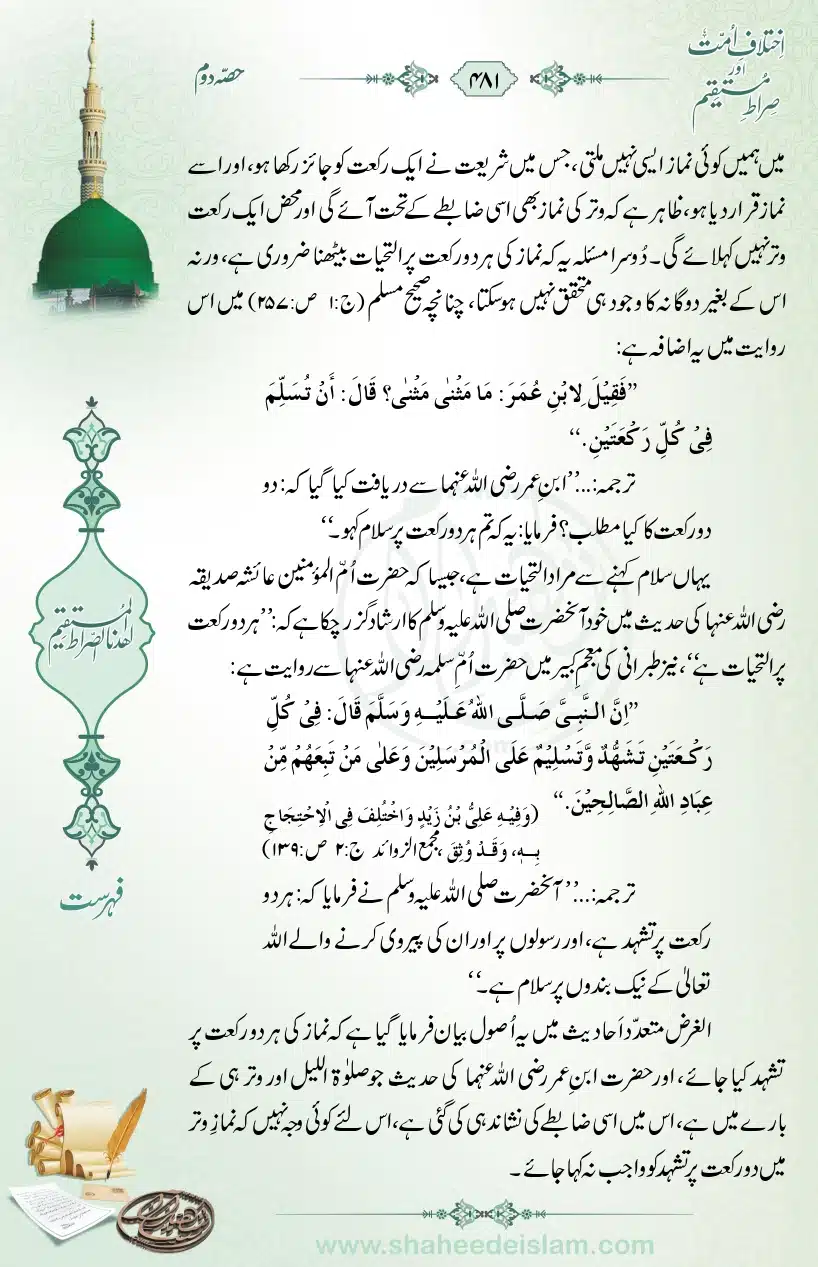 اِختلافِ اُمّت
اور
صِراطِ مُستقیم
۴۸۱
حصّہ دوم
میں ہمیں کوئی نماز ایسی نہیں ملتی، جس میں شریعت نے ایک رکعت کو جائز رکھا ہو، اور اسے
نماز قرار دیا ہو، ظاہر ہے کہ وتر کی نماز بھی اسی ضابطے کے تحت آئے گی اور محض ایک رکعت
وتر نہیں کہلائے گی۔ دُوسرا مسئلہ یہ کہ نماز کی ہر دو رکعت پر التحیات بیٹھنا ضروری ہے، ورنہ
اس کے بغیر دوگانہ کا وجود ہی متحقق نہیں ہوسکتا، چنانچہ صحیح مسلم (ج:۱ ص:۲۵۷) میں اس
روایت میں یہ اضافہ ہے:
”فَقِیْلَ لِابْنِ عُمَرَ: مَا مَثْنٰی مَثْنٰی؟ قَالَ: أَنْ تُسَلِّمَ
فِیْ کُلِّ رَکْعَتَیْنِ.“
ترجمہ:...’’ابنِ عمر رضی اللہ عنہما سے دریافت کیا گیا کہ: دو
دو رکعت کا کیا مطلب؟ فرمایا: یہ کہ تم ہر دو رکعت پر سلام کہو۔‘‘
یہاں سلام کہنے سے مراد التحیات ہے، جیسا کہ حضرت اُمّ المؤمنین عائشہ صدیقہ
رضی اللہ عنہا کی حدیث میں خود آنحضرت صلی اللہ علیہ وسلم کا ارشاد گزر چکا ہے کہ: ’’ہر دو رکعت
پر التحیات ہے‘‘، نیز طبرانی کی معجم کبیر میں حضرت اُمِّ سلمہ رضی اللہ عنہا سے روایت ہے:
”اِنَّ النَّبِیَّ صَلَّی اللهُ عَلَیْهِ وَسَلَّمَ قَالَ: فِیْ کُلِّ
رَکْعَتَیْنِ تَشَهُّدٌ وَّتَسْلِیْمٌ عَلَی الْمُرْسَلِیْنَ وَعَلٰی مَنْ تَبِعَهُمْ مِّنْ
عِبَادِ اللهِ الصَّالِحِیْنَ.“ (وَفِیْهِ عَلِیُّ بْنُ زَیْدٍ وَاخْتُلِفَ فِی الْاِحْتِجَاجِ
بِهٖ، وَقَدْ وُثِقَ، مجمع الزوائد ج:۲ ص:۱۳۹)
ترجمہ:...’’آنحضرت صلی اللہ علیہ وسلم نے فرمایا کہ: ہر دو
رکعت پر تشہد ہے، اور رسولوں پر اور ان کی پیروی کرنے والے اللہ
تعالیٰ کے نیک بندوں پر سلام ہے۔‘‘
الغرض متعدّد اَحادیث میں یہ اُصول بیان فرمایا گیا ہے کہ نماز کی ہر دو رکعت پر
تشہد کیا جائے، اور حضرت ابنِ عمر رضی اللہ عنہما کی حدیث جو صلوٰۃ اللیل اور وتر ہی کے
بارے میں ہے، اس میں اسی ضابطے کی نشاندہی کی گئی ہے، اس لئے کوئی وجہ نہیں کہ نمازِ وتر
میں دو رکعت پر تشہد کو واجب نہ کہا جائے۔
اهدنا الصراط المستقیم
فہرست
www.shaheedeislam.com